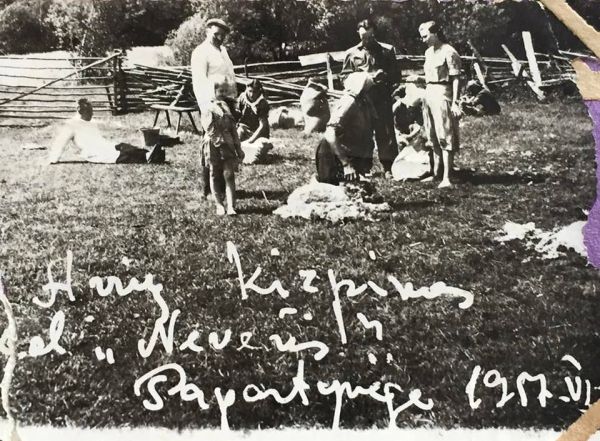 Avių Kirpimas
„Nevėžis"
Papartynėje 1957.VI